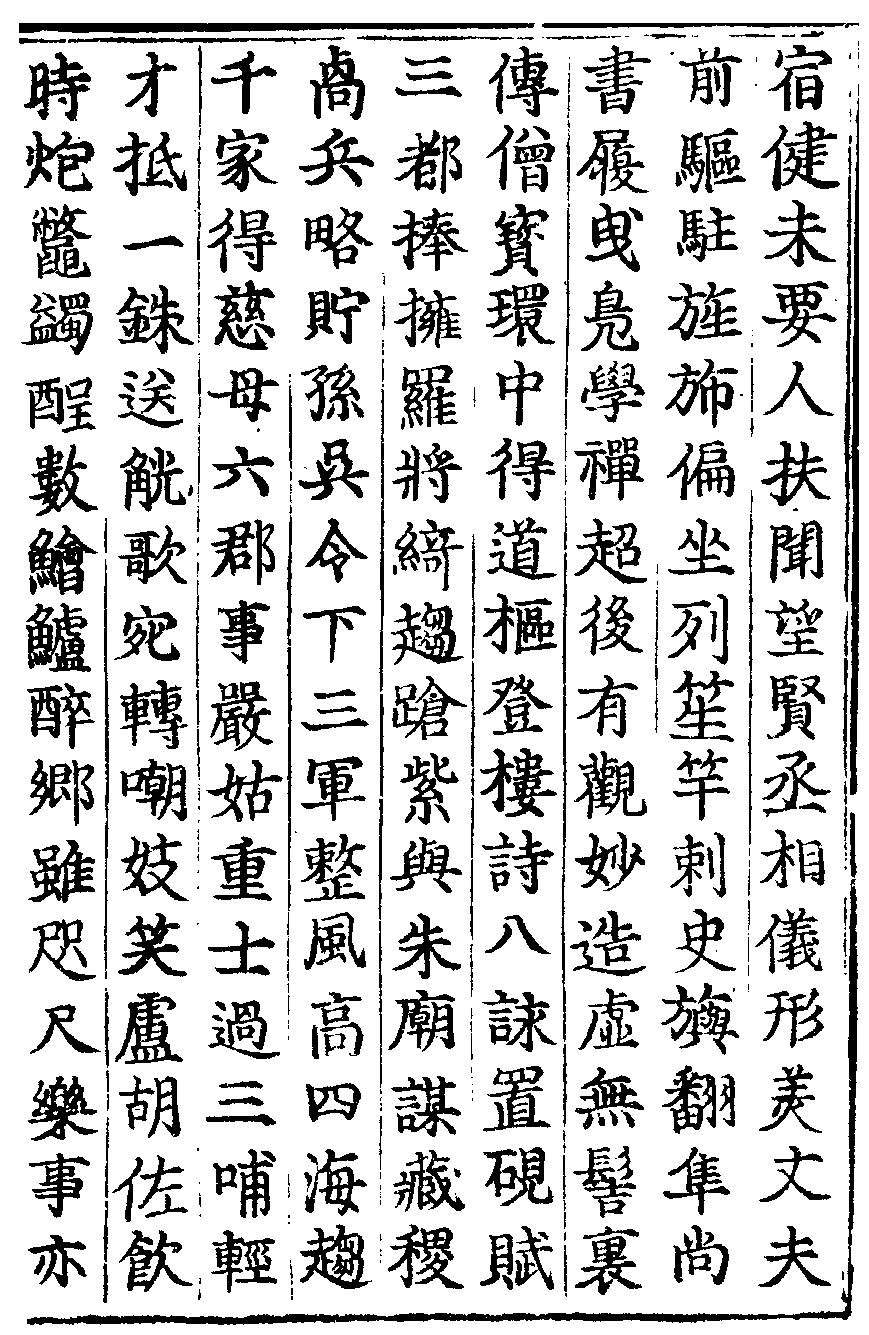 宿健未要人扶聞望賢丞相儀形美丈夫
前驅駐旌斾偏坐列笙竽刺史旟翻隼尚
書履曳鳧學禪超後有觀妙造虛無髻裏
傳僧寳環中得道樞登樓詩八詠置硯賦
三都捧擁羅將綺趨蹌紫與朱廟謀藏稷
禼兵略貯孫吳令下三軍整風高四海趨
千家得慈母六郡事嚴姑重士過三哺輕
才抵一銖送觥歌宛轉嘲妓笑盧胡佐飲
時炮鼈蠲酲數鱠鱸醉鄉雖咫尺樂事亦